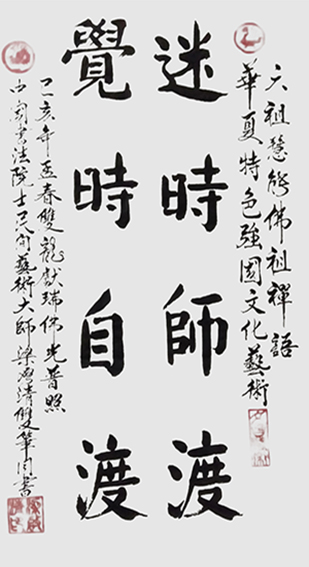 六祖慧能佛祖禪語
華夏特色強國文化藝術
迷時師渡
覺時自渡
己亥年孟春雙龍獻瑞佛光普照
中國書法院士民間藝術大師梁清雙筆同書